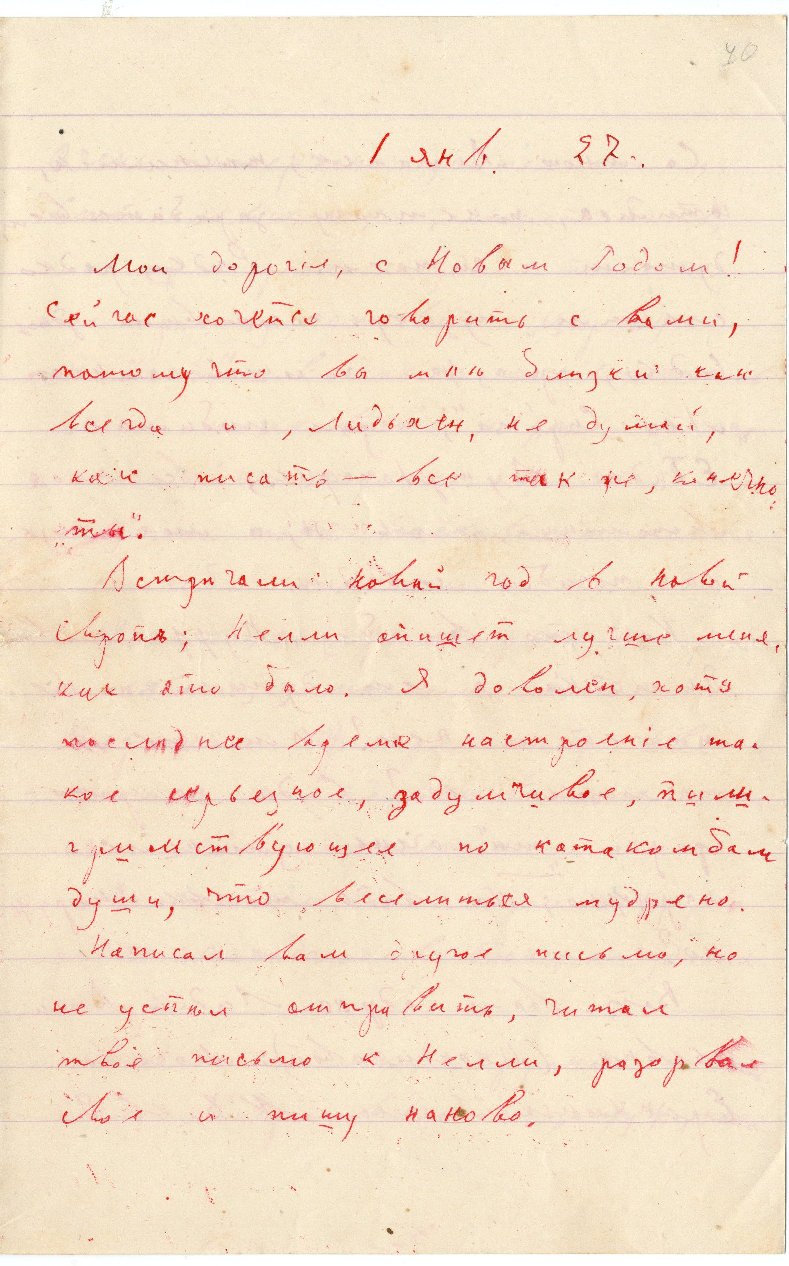 40
1 янв. 27.
Мои дорогіе, с Новым Годом!
Сейчас хочется говорить с вами,
потому что вы мнѣ близки как
всегда и, Лидьхен, не думай,
как писать — все так же, конечно,
"ты".
Встрѣчали новый год в новой
Европѣ; Нелли опишет лучше меня,
как это было. Я доволен, хотя
послѣднее время настроеніе та-
кое серьезное, задумчивое, пили-
гримствующее по катакомбам
души, что веселиться мудрено.
Написал вам другое письмо, но
не успѣл отправить, читал
твое письмо к Нелли, разорвал
свое и пишу наново.